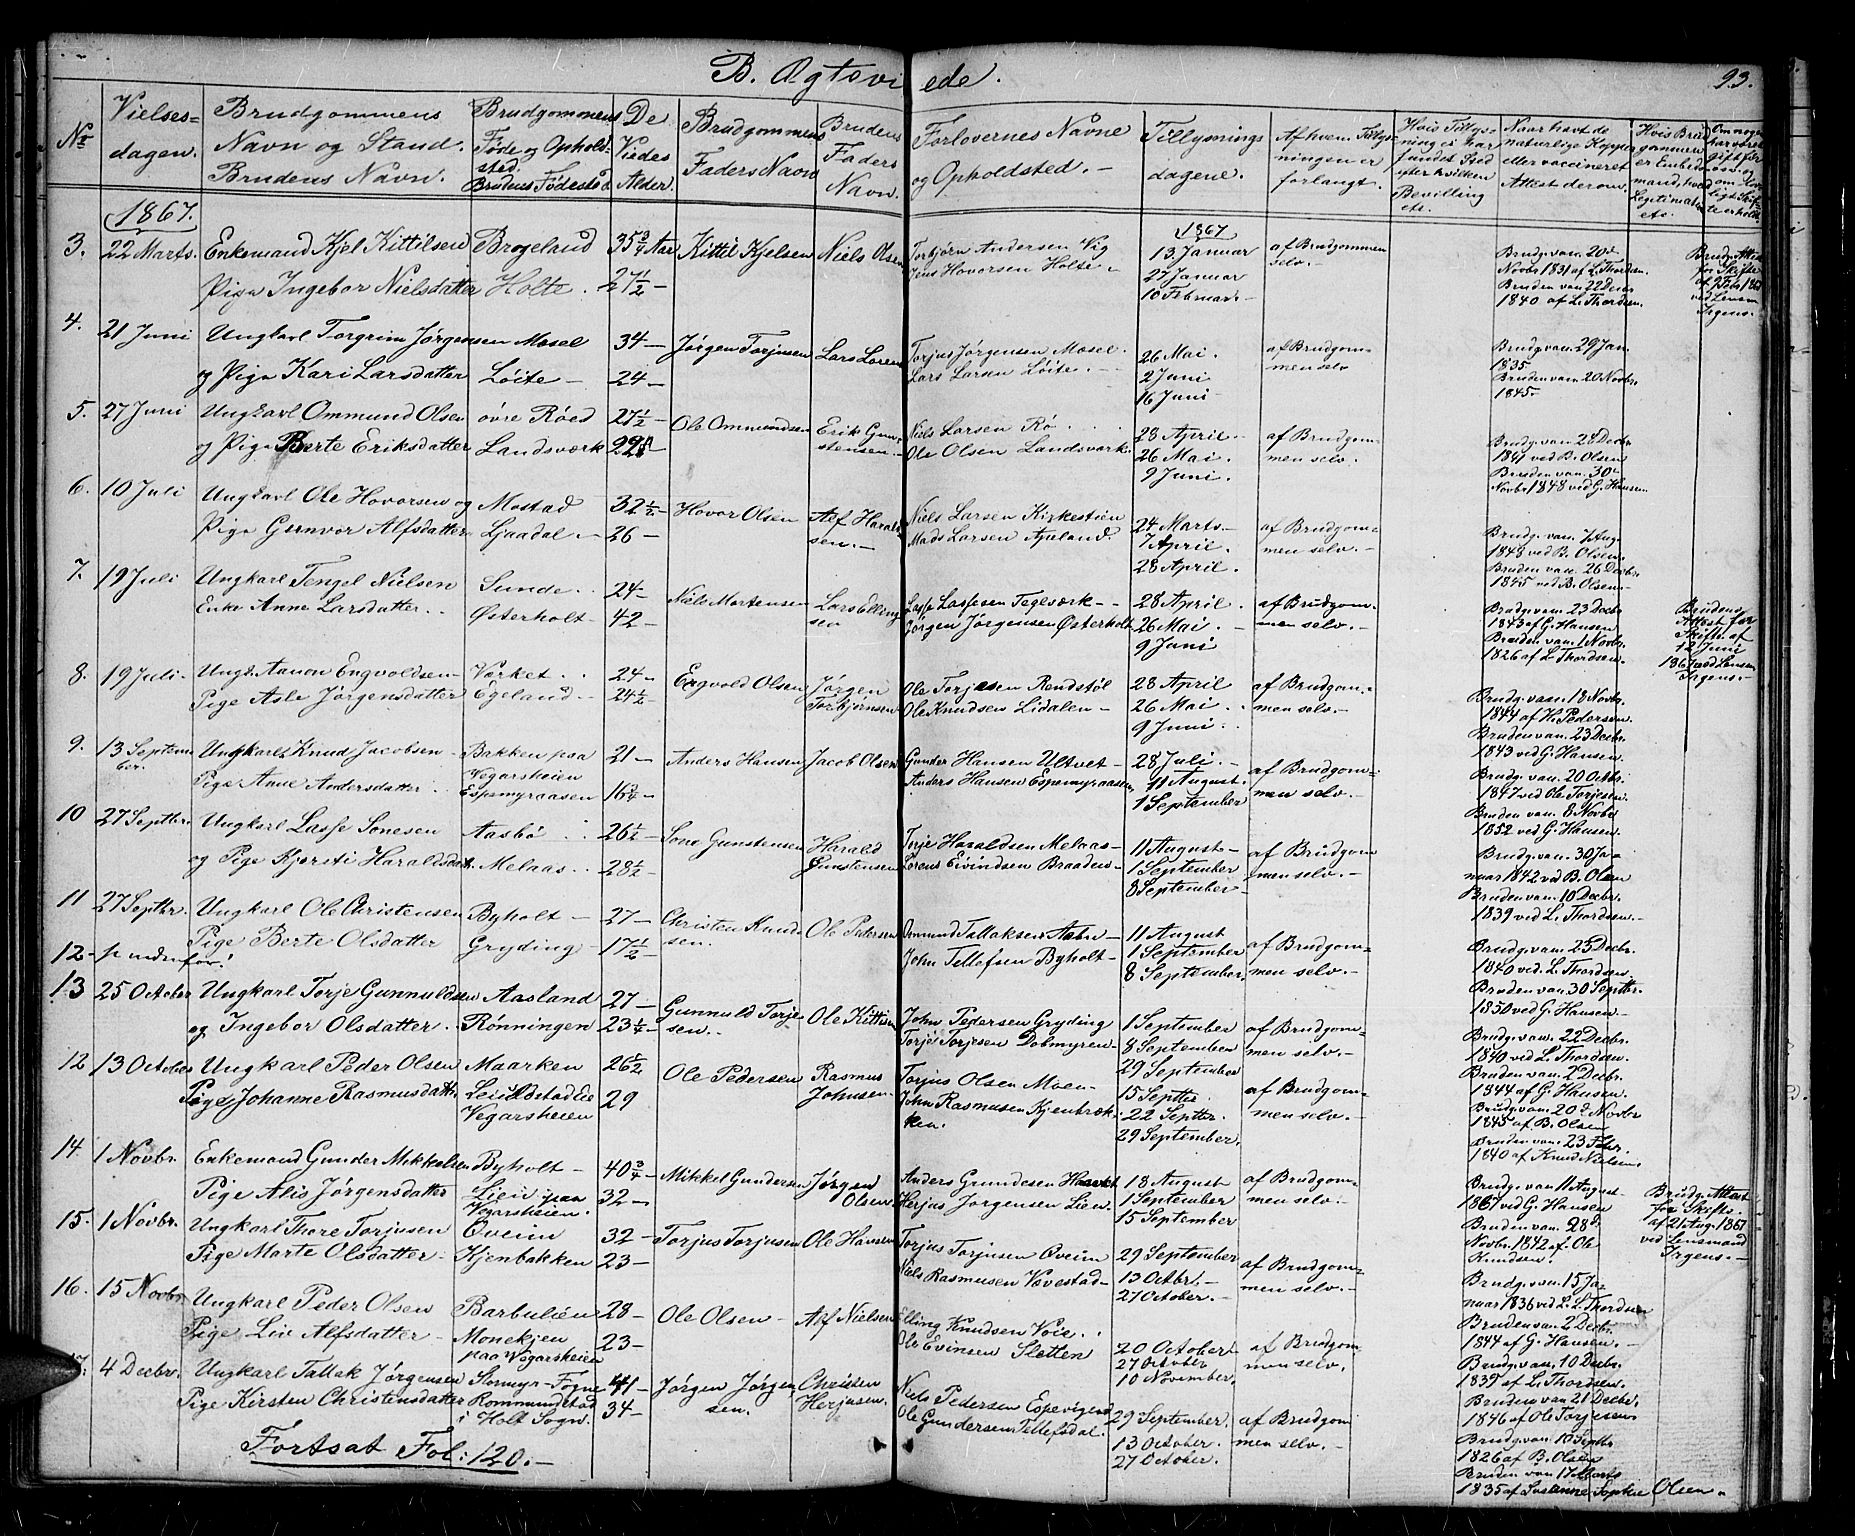 B. Ægtevi ede. 93.
No Vielses=dagen. Brudgommens Navn og Stand. Brudens Navn. Brudgommens Føde og Opholdsted. Brudens Fødested De Viedes Alder. Brudgommens Faders Navn Brudens Faders Navn. Forlovernes Navne og Opholdsted. Tillysningsdagene. Af hvem Tillysningen er forlangt. Hvis Tillysning ei har fundet Sted efter hvilken Bevilling etc. Naar havt de naturlige Kopper eller vaccineret Attest derom.
1867. 1867
3. 22 Marts. Enkemand Kjel Kittilsen Brogeland 35 3/4 Aar Kittil Kjelsen Niels Olsen Torbjørn Andersen Vig 13 Januar af Brudgommen selv. Brudg. van. 20de
Jens Hovorsen Holte 27 Januar Novbr 1831 af L. Thordsen.
Pige Ingebor Nielsdatter Holte. 27 1/2 10 Februar. Bruden van 22 Decbr 1840 af L. Thordsen.
4. 21 Juni Ungkarl Torgrim Jørgensen Mosel 34 Jørgen Torjusen Lars Larsen Torjus Jørgensen Mosel. 26 Mai. af Brudgommen selv Brudg. van. 29 Jan. 1835.
og Pige Kari Larsdatter Løite 24 Lars Larsen Løite. 2 Juni 16 Juni Bruden vam 20 Novbr. 1845.
5. 27 Juni Ungkarl Ommund Olsen øvre Røed 27 1/2 Ole Ommundsen Erik Gunstensen. Niels Larsen Rø 28 April af Brudgommen selv. Brudg. van. 28 Decbr 1841 ved B. Olsen
og Pige Berte Eriksdatter Landsværk Ole Olsen Landsværk 26 Mai. 9 Juni. Bruden van. 30 Novbr 1848 ved G. Hansen.
6. 10 Juli Ungkarl Ole Hovorsen og Mostad 32 1/2 Hovor Olsen Alf Haraldsen. Niels Larsen Kirkestien 24 Marts. af Brudgommen selv. Brudg. van. 7 Aug. 1848 ved B. Olsen.
Pige Gunvor Alfsdatter Ljaadal. 26 Mads Larsen Ajaland. 7 April. 28 April. Bruden van. 26 Decbr. 1845 ved B. Olsen
7. 19 Juli Ungkarl Tengel Nielsen Sunde. 24 Niels Mortensen Lars Ellingsen Lasse Lassesen Teglværk 28 April. af Brudgommen selv. Brudg. van. 23 Decbr 1843 af G. Hansen
Enke Anne Larsdatter. Østerholt 42 Jørgen Jørgensen Østerholt 26 Mai. 9 Juni Bruden van. 1 Novbr. 1826 af L. Thordsen. Brudens Attest for Skifte af 12 Juni 1867 ved Lensm Irgens.
8. 19 Juli. Ungk. Aanon Engvoldsen Værket 24 Engvold Olsen Jørgen Torbjørnsen Ole Torjesen Rendstøl 28 April af Brudgommen selv. Brudg. van. 18 Novbr. 1844 af H. Pedersen
Pige Asle Jørgensdatter Egeland 24 1/2 Ole Knudsen Lidalen 26 Mai. 9 Juni. Bruden van. 23 Decbr. 1843 ved G. Hansen.
9. 13 September. Ungkarl Knud Jacobsen Bakken paa Vegarsheien 21 Anders Hansen Jacob Olsen Gunder Hansen Ultvet 28 Juli. af Brudgommen selv. Brudg. van. 20 Octbr. 1847 ved Ole Torjesen.
Pige Anne Andersdatter. Espemyraasen 16 3/4 Anders Hansen Espemyraasen 11 August. 1 September Bruden van. 8 Novbr 1852 ved G. Hansen.
10 27 Septbr. Ungkarl Lasse Sonesen Aasbø 26 1/2 Sone Gunstensen Harald Gunstensen Torje Haraldsen Melaas 11 August af Brudgommen selv. Brudg. van. 30 Januar 1842 ved B. Olsen
og Pige Kjersti Haraldsdatt. Melaas. 28 1/2 Sorens Eivindsen Braaden 1 September 8 September Bruden van. 10 Decbr. 1839 ved L. Thordsen.
11 27 Septbr. Ungkarl Ole Christensen Byholt 27 Christen Knudsen. Ole Pedersen Ommund Tallaksen 11 August af Brudgommen selv. Brudg. van. 25 Decbr. 1840 ved L. Thordsen
Pige Berte Olsdatter Gryding 17 1/2 John Tellefsen Byholt 1 September 8 September Bruden van. 30 Septbr. 1850 ved G. Hansen
12 nedenfor!
13 25 October Ungkarl Torje Gunnuldsen Aasland 27 Gunnuld Torjesen. Ole Kittilsen John Pedersen Gryding 1 September af Brudgommen selv. Brudg. van. 22 Decbr. 1840 ved L. Thordsen.
og Ingebor Olsdatter. Rønningen 23 1/4 Torje Torjesen Dalmyren 8 September 29 September Bruden van. 2 Decbr. 1844 af G. Hansen.
12 13 October Ungkarl Peder Olsen Maarken 26 1/2 Ole Pedersen Rasmus Johnsen. Torjus Olsen Moen 15 Septbr. af Brudgommen selv. Brudg. van. 20de Novbr 1845 af B. Olsen
Pige Johanne Rasmusdatt. Vegarsheien 29 John Rasmusen Kjenbrækken. 22 Septbr. 29 September. Bruden van. 23 Febr. 1840 af Knud Nielsen.
14. 1 Novbr. Enkemand Gunder Mikkelsen Byholt 40 3/4 Mikkel Gundersen Jørgen Olsen Anders Grundesen 18 August af Brudgommen selv. Brudg. van. 11 August 1867 ved G. Hansen Brudg. Attest for Skifte. af 21 Aug. 1867 ved Lensmand Irgens.
Pige Alis Jørgensdatter Lien paa Vegarsheien. 32 Herjus Jørgensen Lien. 1 September 15 September Bruden van. 28de Novbr. 1842 af Ole Knudsen.
15. 1 Novbr. Ungkarl Thore Torjusen Oveim 32 Torjus Torjusen Ole Havsen Torjus Torjusen Oveim 29 September af Brudgommen selv. Brudg. van. 15 Januar 1836 ved L. Thordsen
Pige Marte Olsdatter Kjenbakken 23 Niels Rasmusen Vævestad 13 Octbr. 27 October. Bruden van. 2 Decbr. 1844 af G. Hansen.
16. 15 Novbr Ungkarl Peder Olsen Barbulien 28 Ole Olsen Alf Nielsen Elling Knudsen Voie 20 October af Brudgommen selv. Brudg van. 10 Decbr. 1839 af L. Thordsen.
Pige Liv Alfsdatter Monekjen paa Vegarsheien 23 Ole Evinsen Sletten 27 October 10 November. Bruden van. 21 Decbr. 1846 af Ole Torjesen
4 Decbr. Ungkarl Tallak Jørgensen 41 Jørgen Jørgensen. Christen Herjusen. Niels Pedersen Espevigen 29 September. af Brudgommen selv. Brudg. van. 10 Septbr 1826 af B. Olsen
Pige Kirsten Christensdatter Rommundstad i Holt Sogn. 34 Ole Gundersen Tellefsdal. 13 October. 27 October. Bruden van 17 Marts 1835 af Susanne Sophie Olsen.
Fortsat Fol: 120.